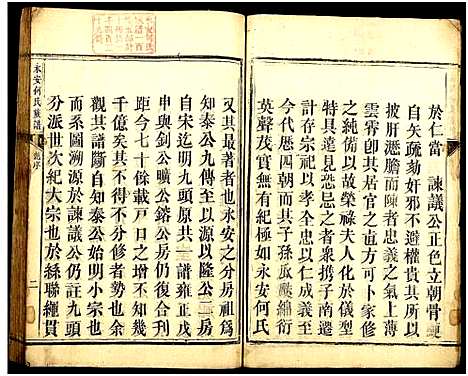 於仁當　諫議公正色立朝骨鯁
自矢疏劾奸邪不避權貴其所
披肝瀝膽而陳者忠義之氣上薄
雲霄卽其居官之直方可卜家修
之純備以故榮祿夫人儀型
特具遠見恐忌之者衆攜子南遷
計存宗祀以孝以仁成義至
今代歷四朝而其子孫瓜瓞綿衍
英聲茂實無有紀極永安何氏
又其最著者也永安之分房祖爲
知泰公九傳至以源以隆公二房
自宋迄明九頭原共一譜雍正戊
申與釗公曠公篈公房仍復合刊
距今七十餘載戸口之增不知幾
千億矣其不得不分修者勢也今
觀其譜斷自知泰公始明小宗也
而系圖溯源於諫議公仍註九頭
分派世次紀大宗也於絲聯繩貫
永安何氏族譜
序
二